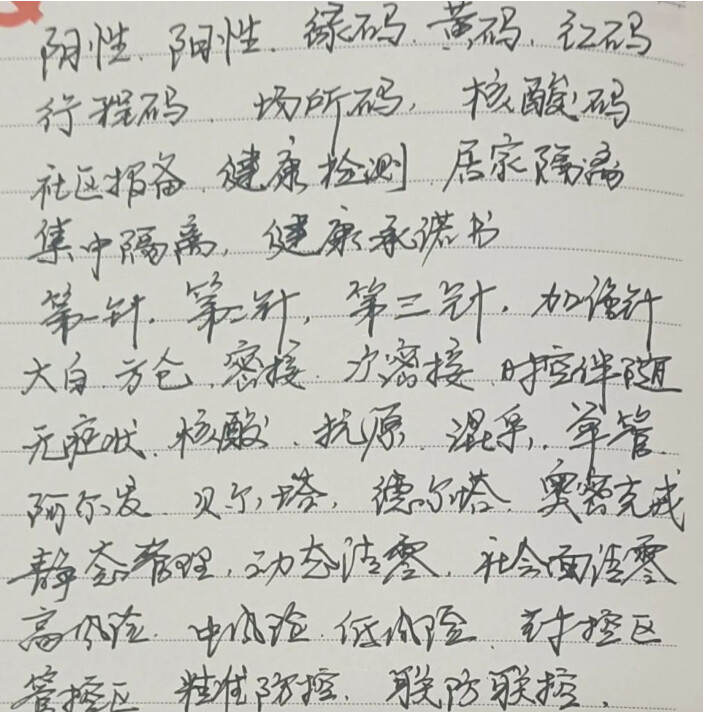 阴性、阳性、绿码、黄码、红码
行程码、场所码、核酸码
社区报备、健康检测、居家隔离
集中隔离、健康承诺书
第一针、第二针、第三针、加强针
大白、方仓、密接、次密接、时控伴随
无症状、核酸、抗原、混采、单管
阿尔发、贝尔塔、德尔塔、奥密克戎
静态管理、动态清零、社会面清零
高风险、中风险、低风险、封控区
管控区、精准防控、联防联控、